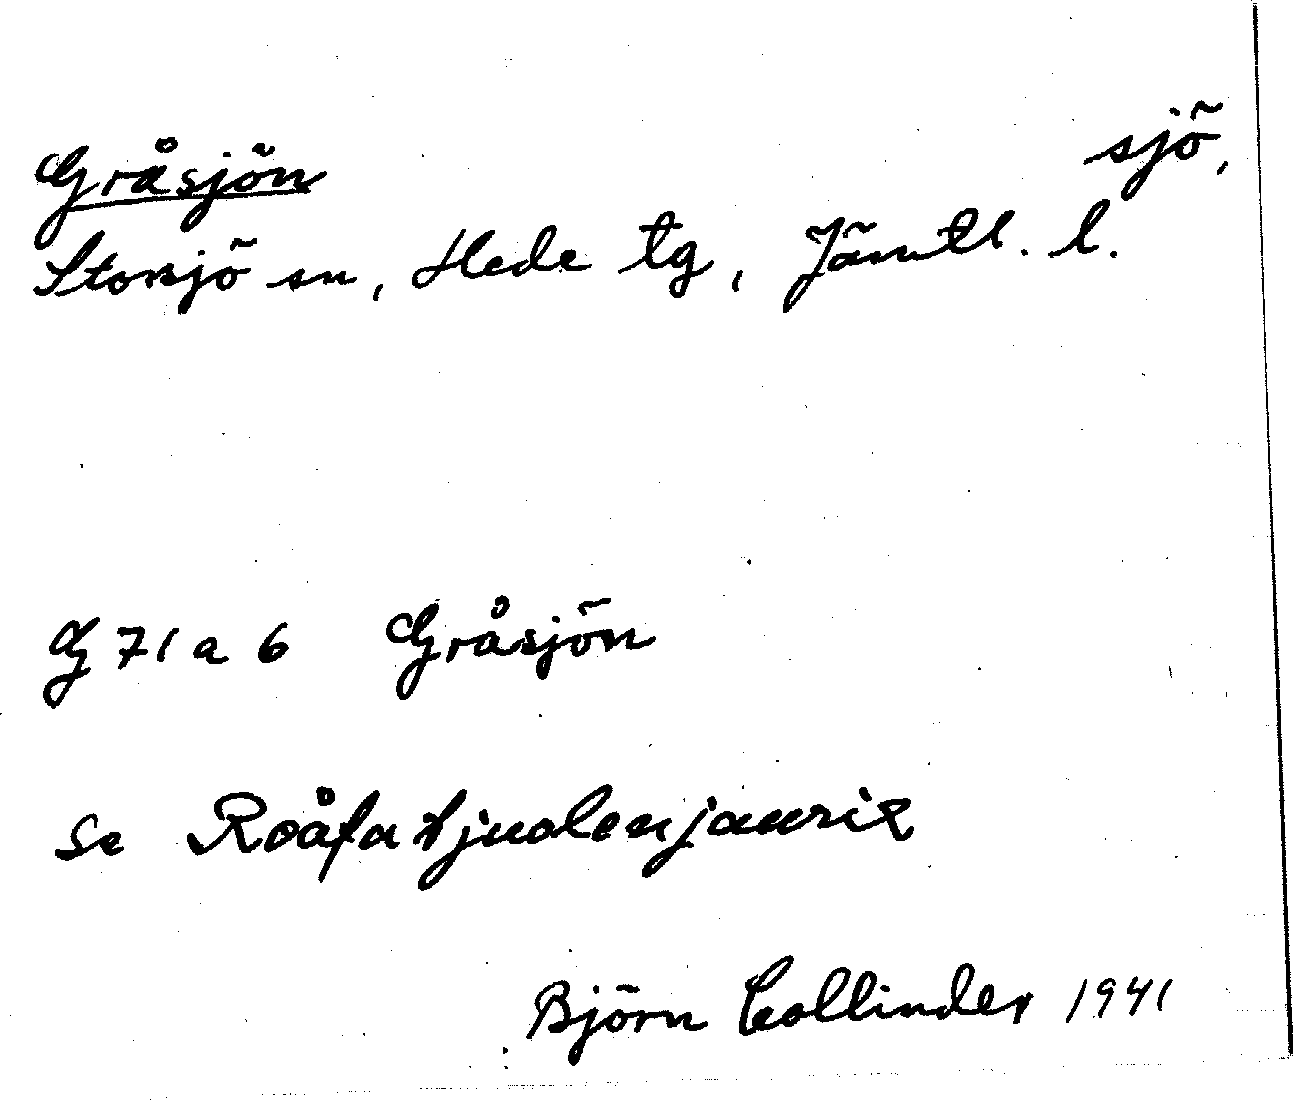 Gråsjön sjö,
Storsjö sn, Hede tg, Jämtl. l.
G 71 a 6 Gråsjön
se
Björn Collinder 1941